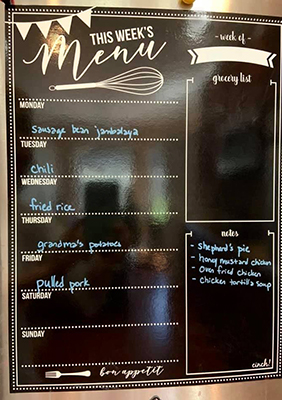 THIS WEEK'S
Menu
MONDAY
sausage bean jambalaya
TUESDAY
chili
WEDNESDAY
fried rice
THURSDAY
grandma's potatoes
FRIDAY
pulled pork
SATURDAY
SUNDAY
bon appetit
- week of -
grocery list
notes
- shepherd's pie
- honey mustard chicken
- Oven fried chicken
- Chicken tortilla soup
cinch!